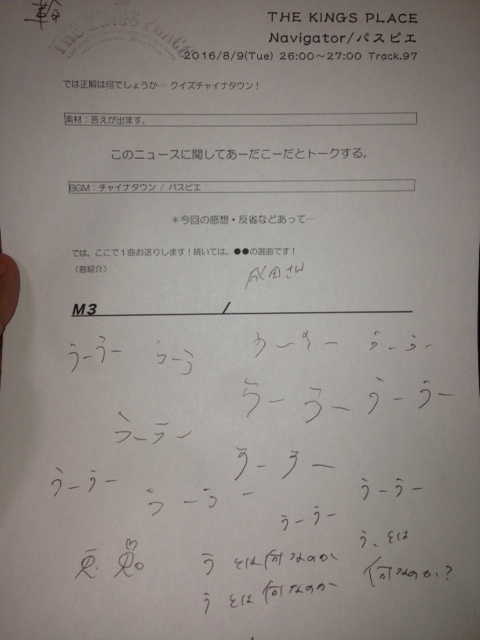 THE KINGS PLACE
THE KINGS PLACE
Navigator/パスピエ
2016/8/9(Tue) 26:00～27:00 Track.97
では正解は何でしょうか… クイズチャイナタウン！
素材：答えが出ます。
このニュースに関してあーだこーだとトークする。
BGM：チャイナタウン / パスピエ
＊今回の感想・反省などあって…
では、ここで１曲お送りします！続いては、●●の選曲です！
（曲紹介）
成田さん
M3 /
うーうー
うーう
うーうー
うーうー
うーうー
うーうー
うーうー
うーうー
うーうー
うーうー
うーうー
うーうー
う とは何なのか
う、とは
何なのか？
う とは何なのか